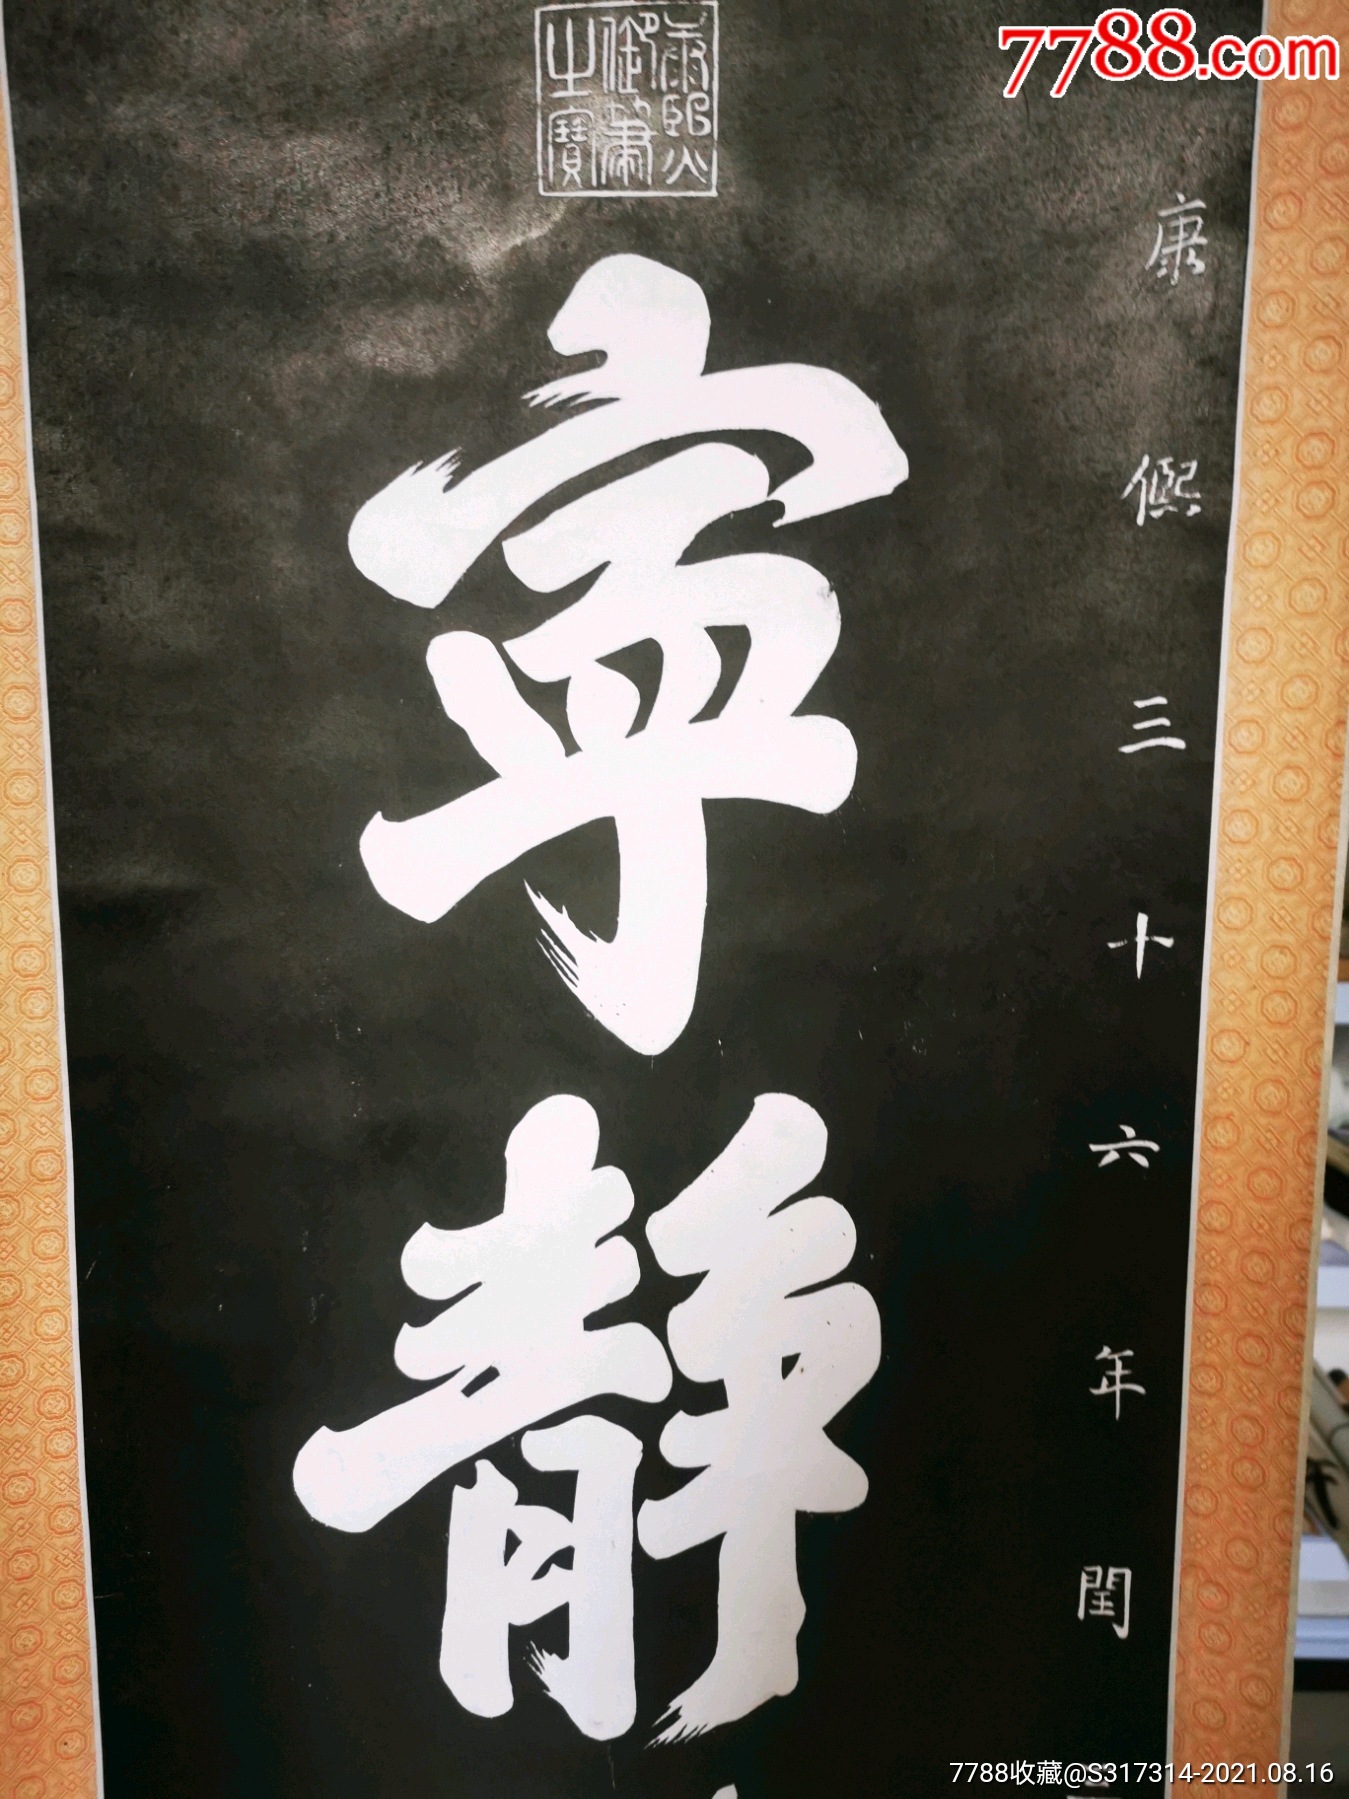 7788.com
康熙
御筆
之寶
康熙三十六年閏三
寧靜
7788收藏@S317314-2021.08.16